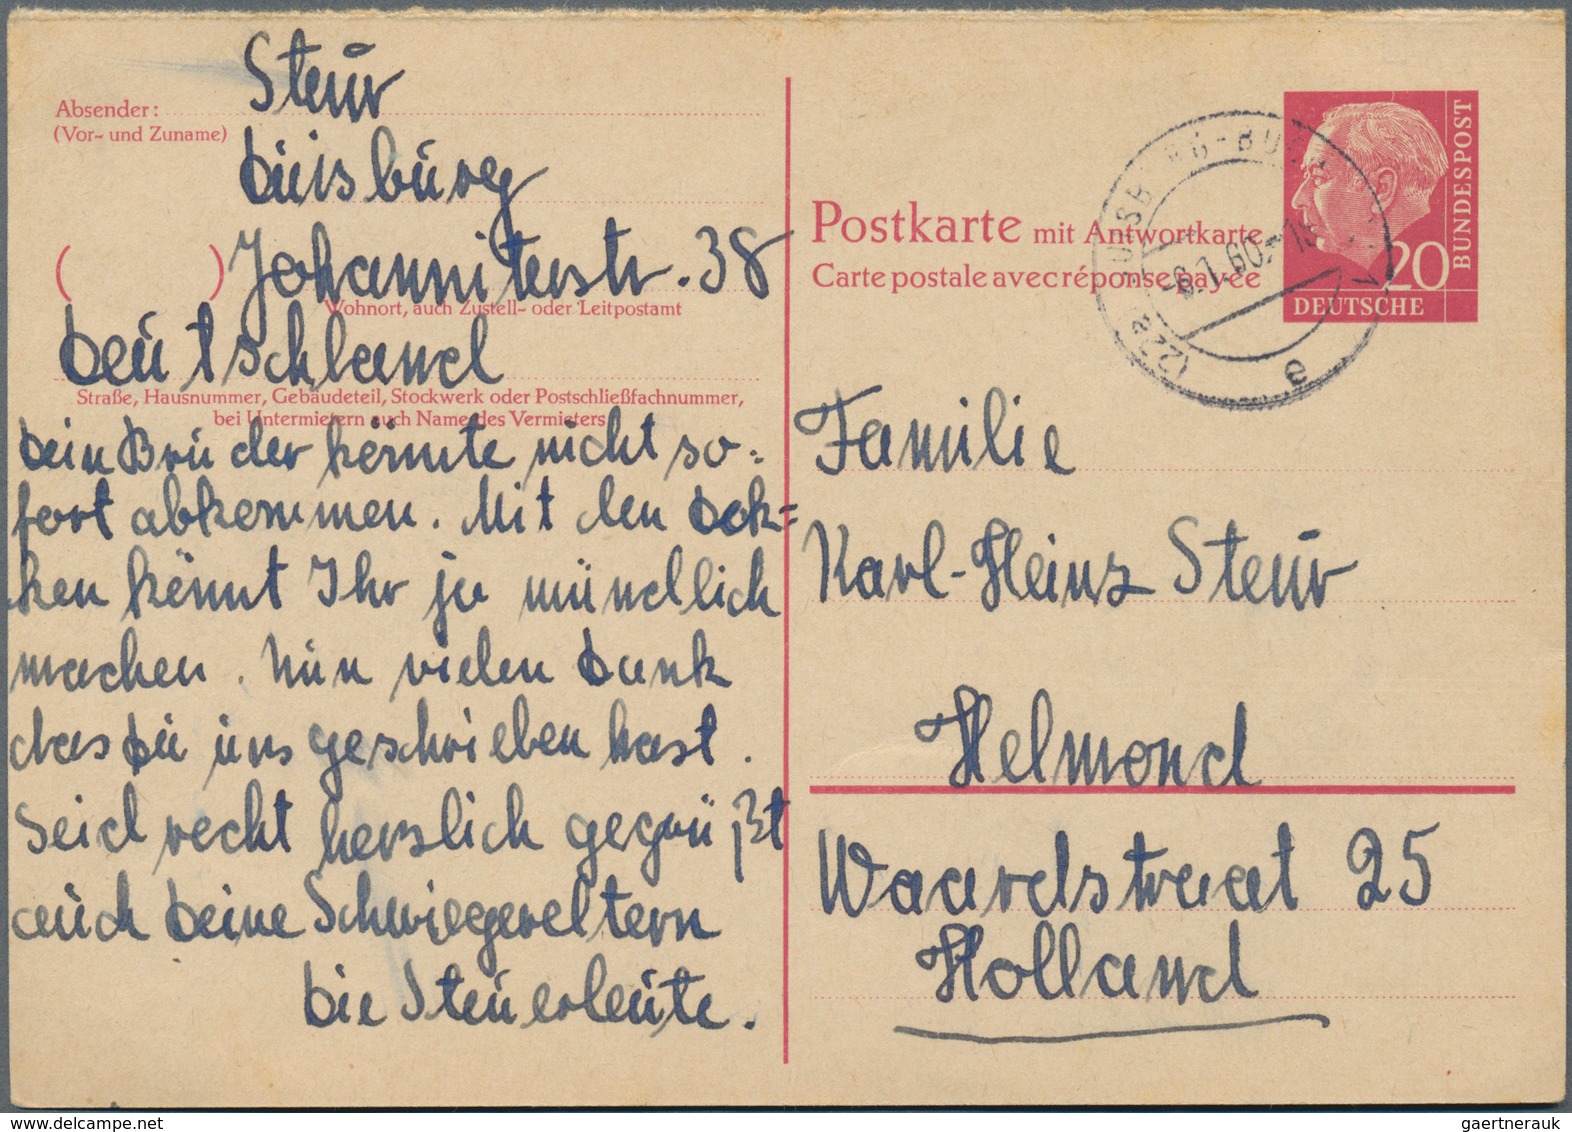 Steur
Absender:
(Vor- und Zuname)
Duisburg
Johanniterstr. 38
( )
Wohnort, auch Zustell- oder Leitpostamt
Deutschland
Straße, Hausnummer, Gebäudeteil, Stockwerk oder Postschließfachnummer,
bei Untermietern auch Name des Vermieters
Dein Bruder könnte nicht so-
fort abkommen. Mit den Dek=
ken könnt Ihr ja mündlich
machen. Nun vielen Dank
das Du uns geschrieben hast.
Seid recht herzlich gegrüßt
auch Deine Schwiegereltern
Die Steuerleute.
Postkarte mit Antwortkarte
Carte postale avec réponse payée
-6.1.60.-18
(22a)
e
20
DEUTSCHE
BUNDESPOST
Familie
Karl-Heinz Steur
Helmond
Waardstraat 25
Holland
gaertnerauk